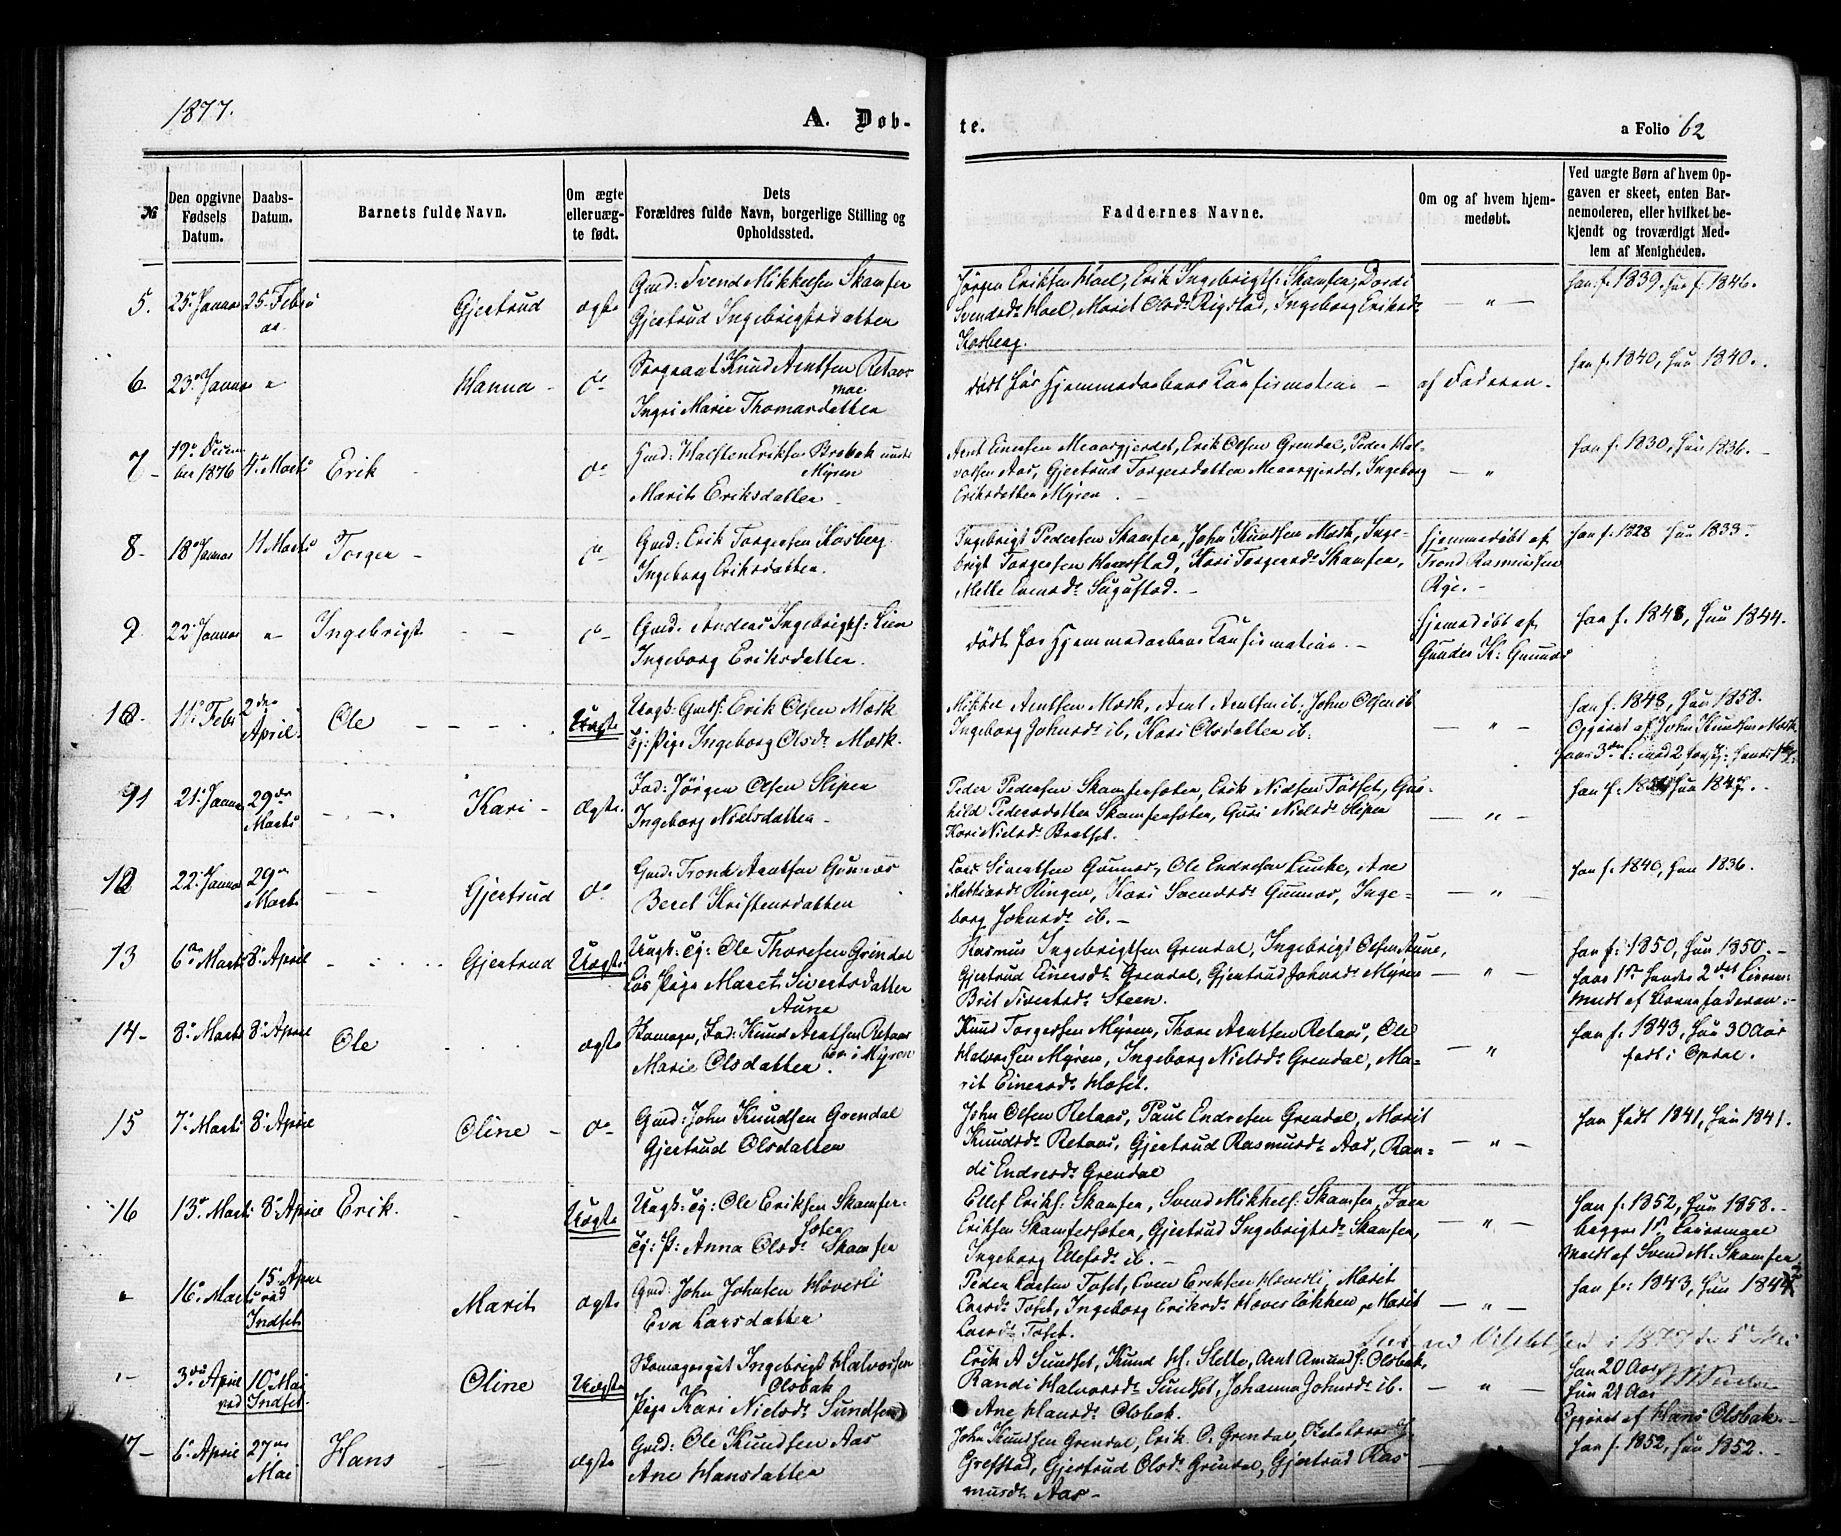 1877.
A. Døb-
te.
a Folio 62
№
Den opgivne
Fødsels
Datum.
Daabs-
Datum.
Barnets fulde Navn.
Om ægte
eller uæg-
te født.
Dets
Forældres fulde Navn, borgerlige Stilling og
Opholdssted.
Faddernes Navne.
Om og af hvem hjem-
medøbt.
Ved uægte Børn af hvem Op-
gaven er skeet, enten Bar-
nemoderen, eller hvilket be-
kjendt og troværdigt Med-
lem af Menigheden.
5. 25. Januar 25. Febru
ar
Gjertrud ægte
Gmd: Svend Mikkelsen Skamfer
Gjertrud Ingebrigtsdatter
Jørgen Eriksen Hoel, Erik Ingebrigts: Skamfer, Dordi
Svendsdr Hoel, Marit Olsdr Rigstad, Ingeborg Eriksdr
Kosberg.
— " —
Han f. 1839, hun f. 1846.
6. 23. Januar "
Hanna - do
Sergeant Knud Arntsen Retaas
moe
Ingri Marie Thomasdatter
død før Hjemmedaabens Confirmation -
af Faderen.
Han f. 1840, Hun 1840.
7 - 19. Decem
ber 1876 4. Marts
Erik do
Gmd: Halsten Eriksen Brobak
Myren
Marit Eriksdatter
Arnt Einersen Meaasgjerdet, Erik Olsen Grendal, Peder Hal-
vorsen Aas, Gjertrud Torgersdatter Meaasgjerdet, Ingeborg
Eriksdatter Myren
— "
Han f. 1830, Hun 1836.
8 - 18 Januar 4 Marts
Torger - do
Gmd: Erik Torgersen Kosberg
Ingeborg Eriksdatter.
Ingebrigt Pedersen Skamfer, John Knudsen Mærk, Inge-
brigt Torgersen Haverstad, Kari Torgersdr Skamfer,
Mette Evensdr Sugustad. -
Hjemmedøbt af
Trond Rasmussen
Rye. -
Han f. 1828 Hun 1833.
9. 22. Januar "
Ingebrigt - - do -
Gmd. Anders Ingebrigts: Lien
Ingeborg Eriksdatter.
død før Hjemmedaabens Confirmation. -
Hjemedøbt af
Gunder K: Gunnes
Han f. 1848, Hun 1844.
10. 11. Febr 2den
April.
Ole - - - - Uægte
Ungk: Gmds: Erik Olsen Mærk
Tj: Pige Ingeborg Olsdr Mærk.
Mikkel Arntsen Mærk, Arnt Arntsen ib. John Olsen ib
Ingeborg Johnsdr ib, Kari Olsdatter ib.
— " —
Han f. 1848, Hun 1858.
Opgivet af John Knudsen Mærk
11 21. Janua 29de
Marts
Kari - Ægte.
Ind: Jørgen Olsen Slipen
Ingeborg Nielsdatter
Peder Pedersen Skamfersæter, Erik Nielsen Tøfset, Gun-
hild Pedersdatter Skamfersæter, Guri Nielsdr Slipen
Kari Nielsdr Bratset.
— " —
Hun 1847. -
12 22. Janua 29de
Marts
Gjertrud do
Gmd: Trond Arntsen Gunnes
Beret Kristensdatter
Lars Sivertsen Gunnes, Ole Endresen Lunke, Ane
Mathiasdr Ringen, Kari Svendsdr Gunnes, Inge-
borg Johnsdr ib. -
— " —
Han f. 1840, Hun 1836.
13 6te Marts 8. April
Gjertrud Uægte
Ungk: Tj: Ole Thoresen Grindal
Løs Pige Maret Sivertsdatter
Aune
Rasmus Ingebrigtsen Grendal, Ingebrigt Olsen Aune,
Gjertrud Einersdr Grendal, Gjertrud Johnsdr Myren
Brit Sivertsdr Steen.
— " —
Han f: 1850, Hun 1850. -
Hans 1ste Hendes 2det Leierm:
Meldt af Barnefaderen. -
14 - 8. Marts 8. April
Ole ægte
Skomager, Ind: Knud Arntsen Retaas
boe i Myren
Marie Olsdatter.
Knud Torgersen Myren, Thore Arntsen Retaas, Ole
Halvorsen Myren, Ingeborg Nielsdr Grendal, Ma-
rit Einersdr Hoset.
— "
Han f. 1843, Hun 30 Aar
født i Opdal.
15 7. Marts 8. April
Oline - do
Gmd: John Knudsen Grendal
Gjertrud Olsdatter
John Olsen Retaas, Paul Endresen Grendal, Marit
Knudsdr Retaas, Gjertrud Rasmusdr Aas, Ran-
di Endresdr Grendal
— " —
Han født 1841, Hun 1841.
16 13. Marts 8. April Erik.
Uægte
Ungk: Tj: Ole Eriksen Skamfer-
sæter
Tj: P: Anna Olsdr Skamfer
Ellef Eriks: Skamfer, Svend Mikkels: Skamfer, Iver
Eriksen Skamfersæter, Gjertrud Ingebrigtsdr Skamfer,
Ingeborg Ellefsdr ib. -
— " —
Han f. 1852, Hun 1858. -
begges 1ste Leiermaal
Meldt af Svend M. Skamfer
" 16. Mar 15. Apri
ved
Indset
Marit ægte
Gmd: John Johnsen Høverli
Eva Larsdatter
Peder Larsen Tøset, Even Eriksen Høverli, Marit
Larsdr Tøset, Ingeborg Eriksdr Haverløkken, Marit
Larsdr Tøset.
— " —
Han f: 1843, Hun 1844
" - 3die April
ved
10. Mai
Indset.
Oline Uægte
Skomagergut Ingebrigt Halvorsen
Olsbak
Pige Kari Nielsdr Sundset
Erik A Sundset, Knud H: Slette, Arnt Amunds: Olsbak,
Randi Halvorsdr Sundset, Johanna Johnsdr ib.
Ane Hansdr Olsbak.
— " —
Han 20 Aar
Hun 21 Aar
Opgivet af Hans Olsbak. -
17 - 6. April 27de
Mai
Hans — ægte
Gmd: Ole Knudsen Aas
Ane Hansdatter
John Knudsen Grendal, Erik O. Grendal,
Grefstad, Gjertrud Olsdr Grindal, Gjertrud Ras
musdr Aas -
Han f. 1852, Hun 1852. -